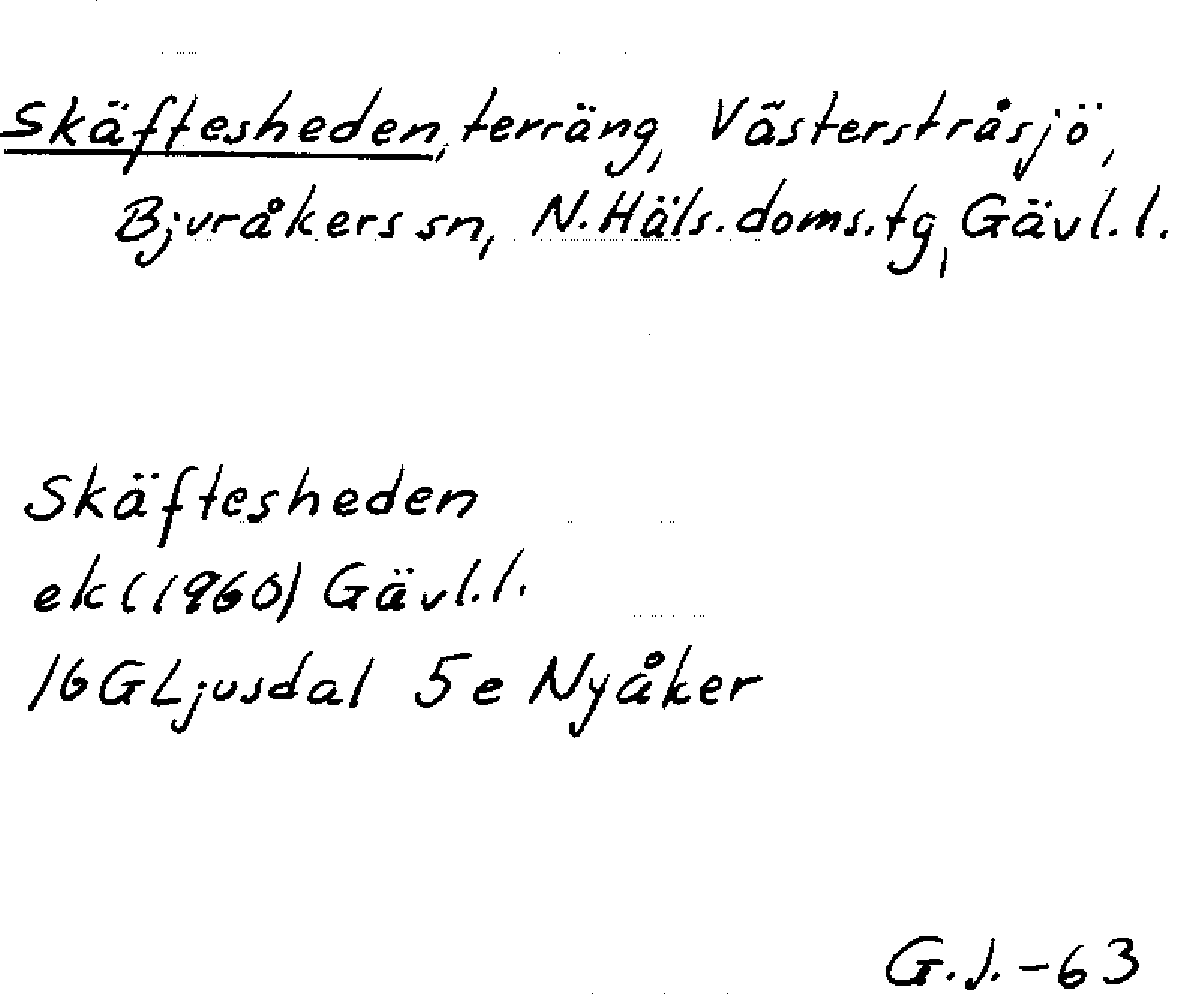 Skäftesheden, terräng, Västerstråsjö,
Bjuråkers sn, N.Häls.doms.tg, Gävl.l.
Skäftesheden
ek (1960) Gävl.l.
16G Ljusdal 5e Nyåker
G.J.-63